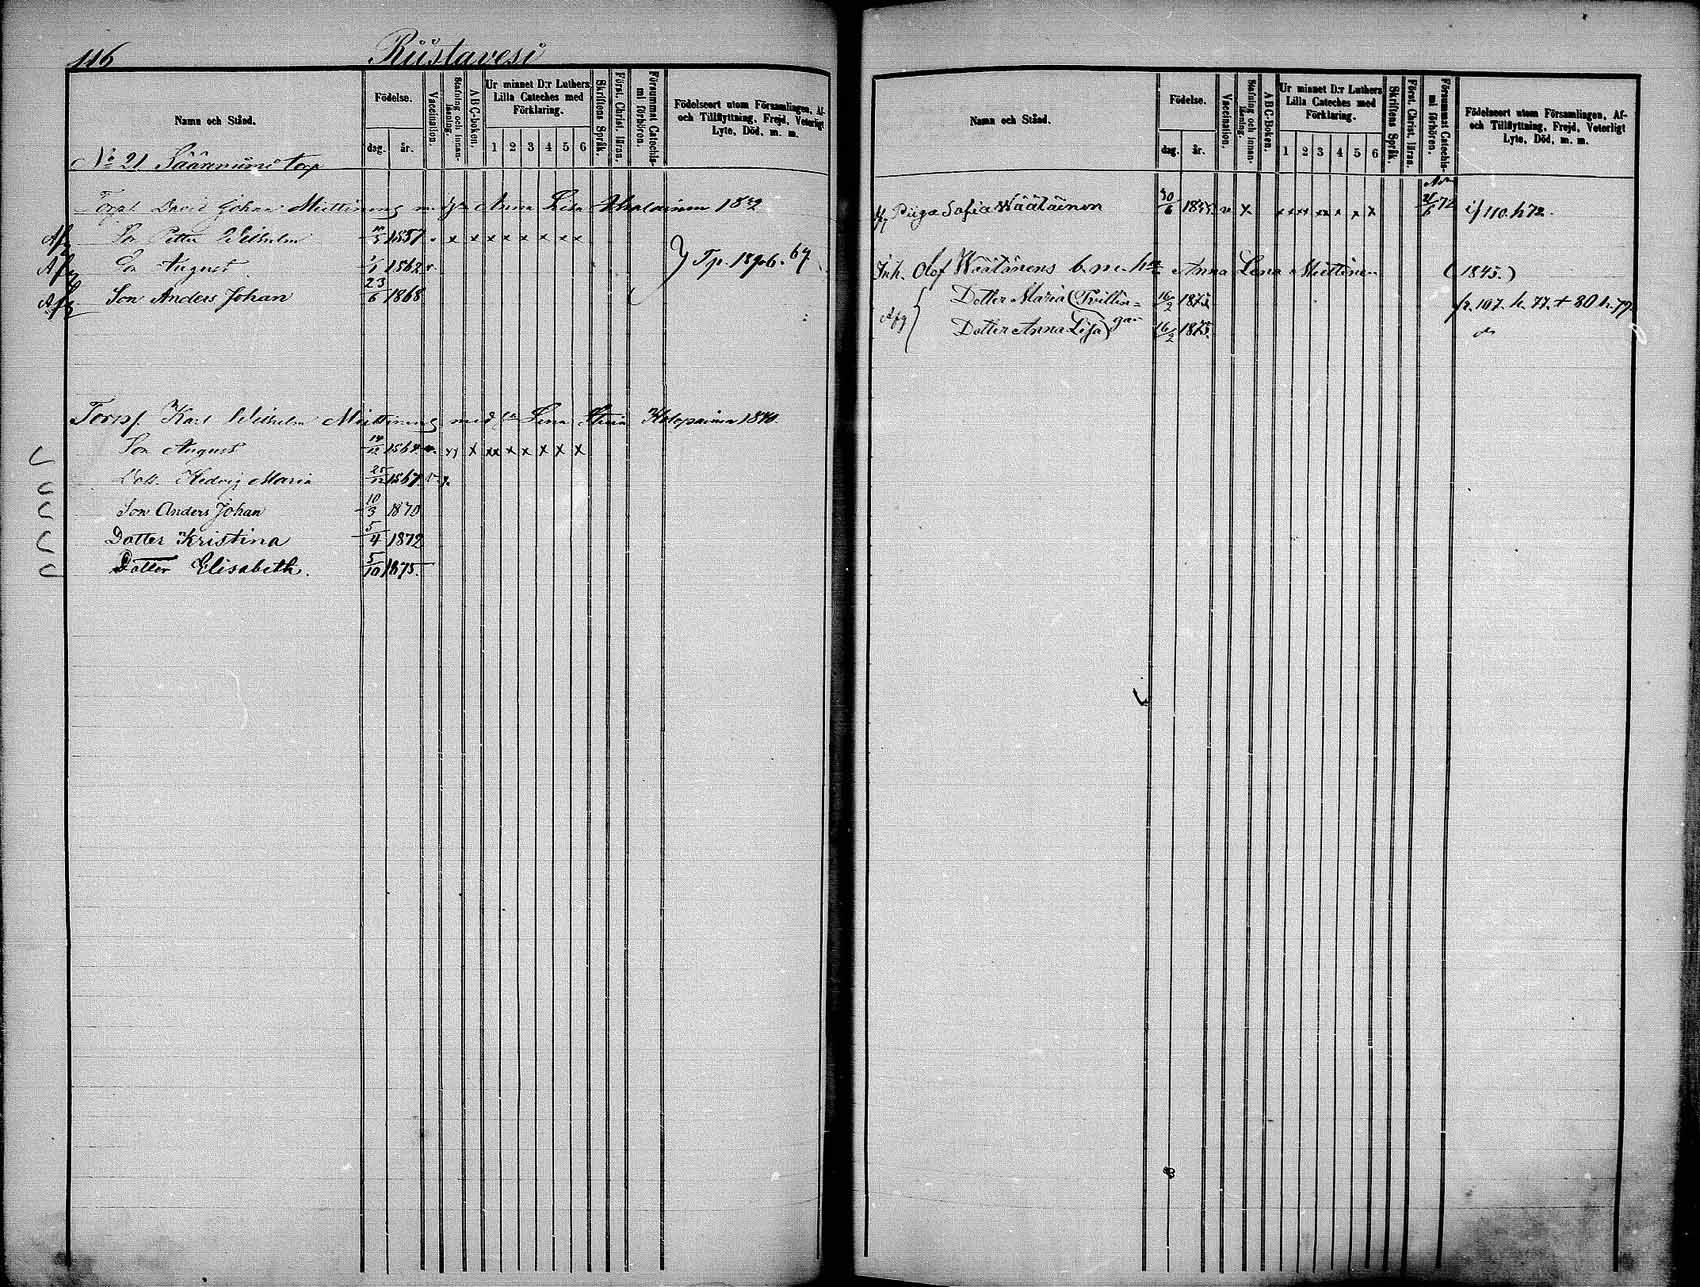 116 Riistavesi
Namn och Stånd.
Födelse.
dag. år.
Vaccination.
Stafning och innan-läsning.
ABC-boken.
Ur minnet D:r Luthers Lilla Cateches med Förklaring.
1 2 3 4 5 6
Skriftens Språk.
Först. Christ. läran.
Försummat Catechis-mi förhören.
Födelseort utom Församlingen, Af- och Tillflyttning, Frejd, Veterligt Lyte, Död, m. m.
No 21 Säärnniemi torp
Torp. David Johan Miettinens Anna Lisa
Afg Son Petter Wilhelm 1857 x x x x x x x x
Afg Son August 1/1 1862 v.
Afg Son Anders Johan 23/6 1868
Torpf. Karl Wilhelm Miettinens med h. Lena Stina Holopainen 1840.
Son August 1864 x x x x x x x
Dott. Hedvig Maria 25/12 1867
Son Anders Johan 10/3 1870
Dotter Kristina 5/4 1872
Dotter Elisabeth. 5/10 1875.
Namn och Stånd.
Födelse.
dag. år.
Vaccination.
Stafning och innan-läsning.
ABC-Boken.
Ur minnet D:r Luthers Lilla Cateches med Förklaring.
1 2 3 4 5 6
Skriftens Språk.
Först. Christ. läran.
Försummat Catechis-mi förhören.
Födelseort utom Församlingen, Af- och Tillflyttning, Frejd, Veterligt Lyte, Död, m. m.
Piga Sofia Wäätäinen 30/6 v x x x x x x x x if 110. h 72.
Inh. Olof Wäätänens b. m. hu Anna Lena Miettinen (1845.)
Dotter Maria (Tvillin- 16/2 1875. p. 107. h. 77. + 80 h. 79.
Afg Dotter Anna Lisa) gar 16/2 1875.